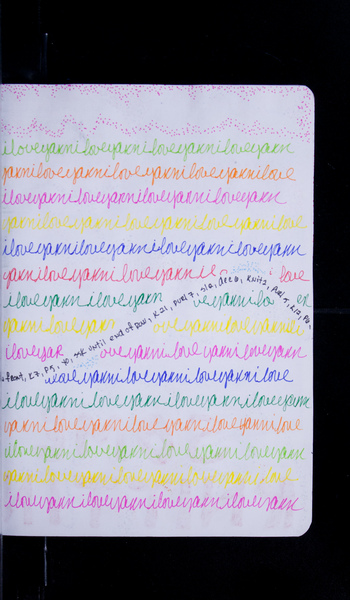 iloveyarniloveyarniloveyarniloveyarn
yarniloveyarniloveyarniloveyarnilove
iloveyarniloveyarniloveyarniloveyarn
yarniloveyarniloveyarniloveyarnilove
iloveyarniloveyarniloveyarniloveyarn
yarniloveyarniloveyarnil i love
iloveyarn iloveyarn oveyarnilo
yarniloveyarn oveyarniloveyarnil
iloveyar oveyarniloveyarniloveyarn
K7, P5, yo, mk until end of row, K21, purl 7, slip, dec6, knit2
iloveyarniloveyarniloveyarnilove
iloveyarniloveyarniloveyarniloveyarn
yarniloveyarniloveyarniloveyarnilove
iloveyarniloveyarniloveyarniloveyarn
yarniloveyarniloveyarniloveyarnilove
iloveyarniloveyarniloveyarniloveyarn